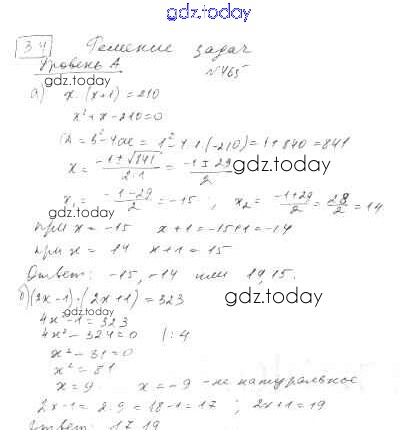 gdz.today
34 Решение задач
Уровень А №465
gdz.today
а) x·(x+1)=210
x²+x-210=0
D=b²-4ac=1²-4·1·(-210)=1+840=841
x=(-1±√841)/(2·1)=(-1±29)/2
gdz.today
x₁=(-1-29)/2=-15; x₂=(-1+29)/2=28/2=14
при x=-15 x+1=-15+1=-14
gdz.today
при x=14 x+1=15
Ответ: -15,-14 или 14,15.
б)(2x-1)·(2x+1)=323
gdz.today
4x²-1=323
4x²-324=0 |:4
x²-81=0
x²=81
x=9 x=-9 -не натуральное
2x-1=2·9=18-1=17; 2x+1=19
Ответ: 17,19